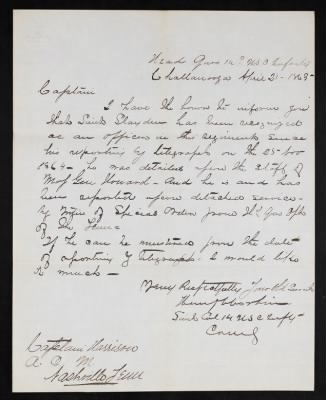 Head Qurs 14th USC Infantry
Chattanooga April 21 1865
Captain
I have the honor to inform you
that Lieut Slayden has been recognized
as an officer in the regiment since
his reporting by telegraph on the 25 Nov
1864 – he was detailed upon the staff of
Maj Genl Howard – And he is and has
been reported upon detached service –
by virtue of Special Orders from Hd Qrs
of the
If he can be mustered from the date
of reporting by telegraph – I would like
it much –
Very Respectfully Your Obt Servt
Lieut Col 14 USC Inf'y
Comdg
Captain Harrison
A. C. M
Nashville Tenn